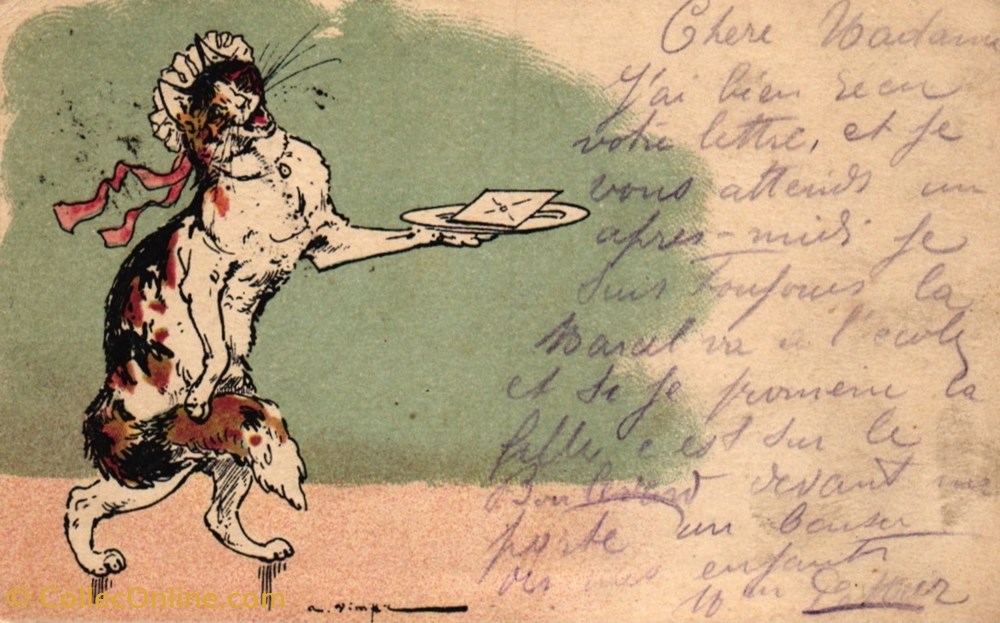 Chere Madame
J'ai bien recu
votre lettre, et je
vous attends un
apres-midi je
suis toujours la
Marcel va a l'école
et si je promene la
fille c est sur le
Boulevard devant ma
porte un baiser
des mes enfants
M me
© CollecOnline.com